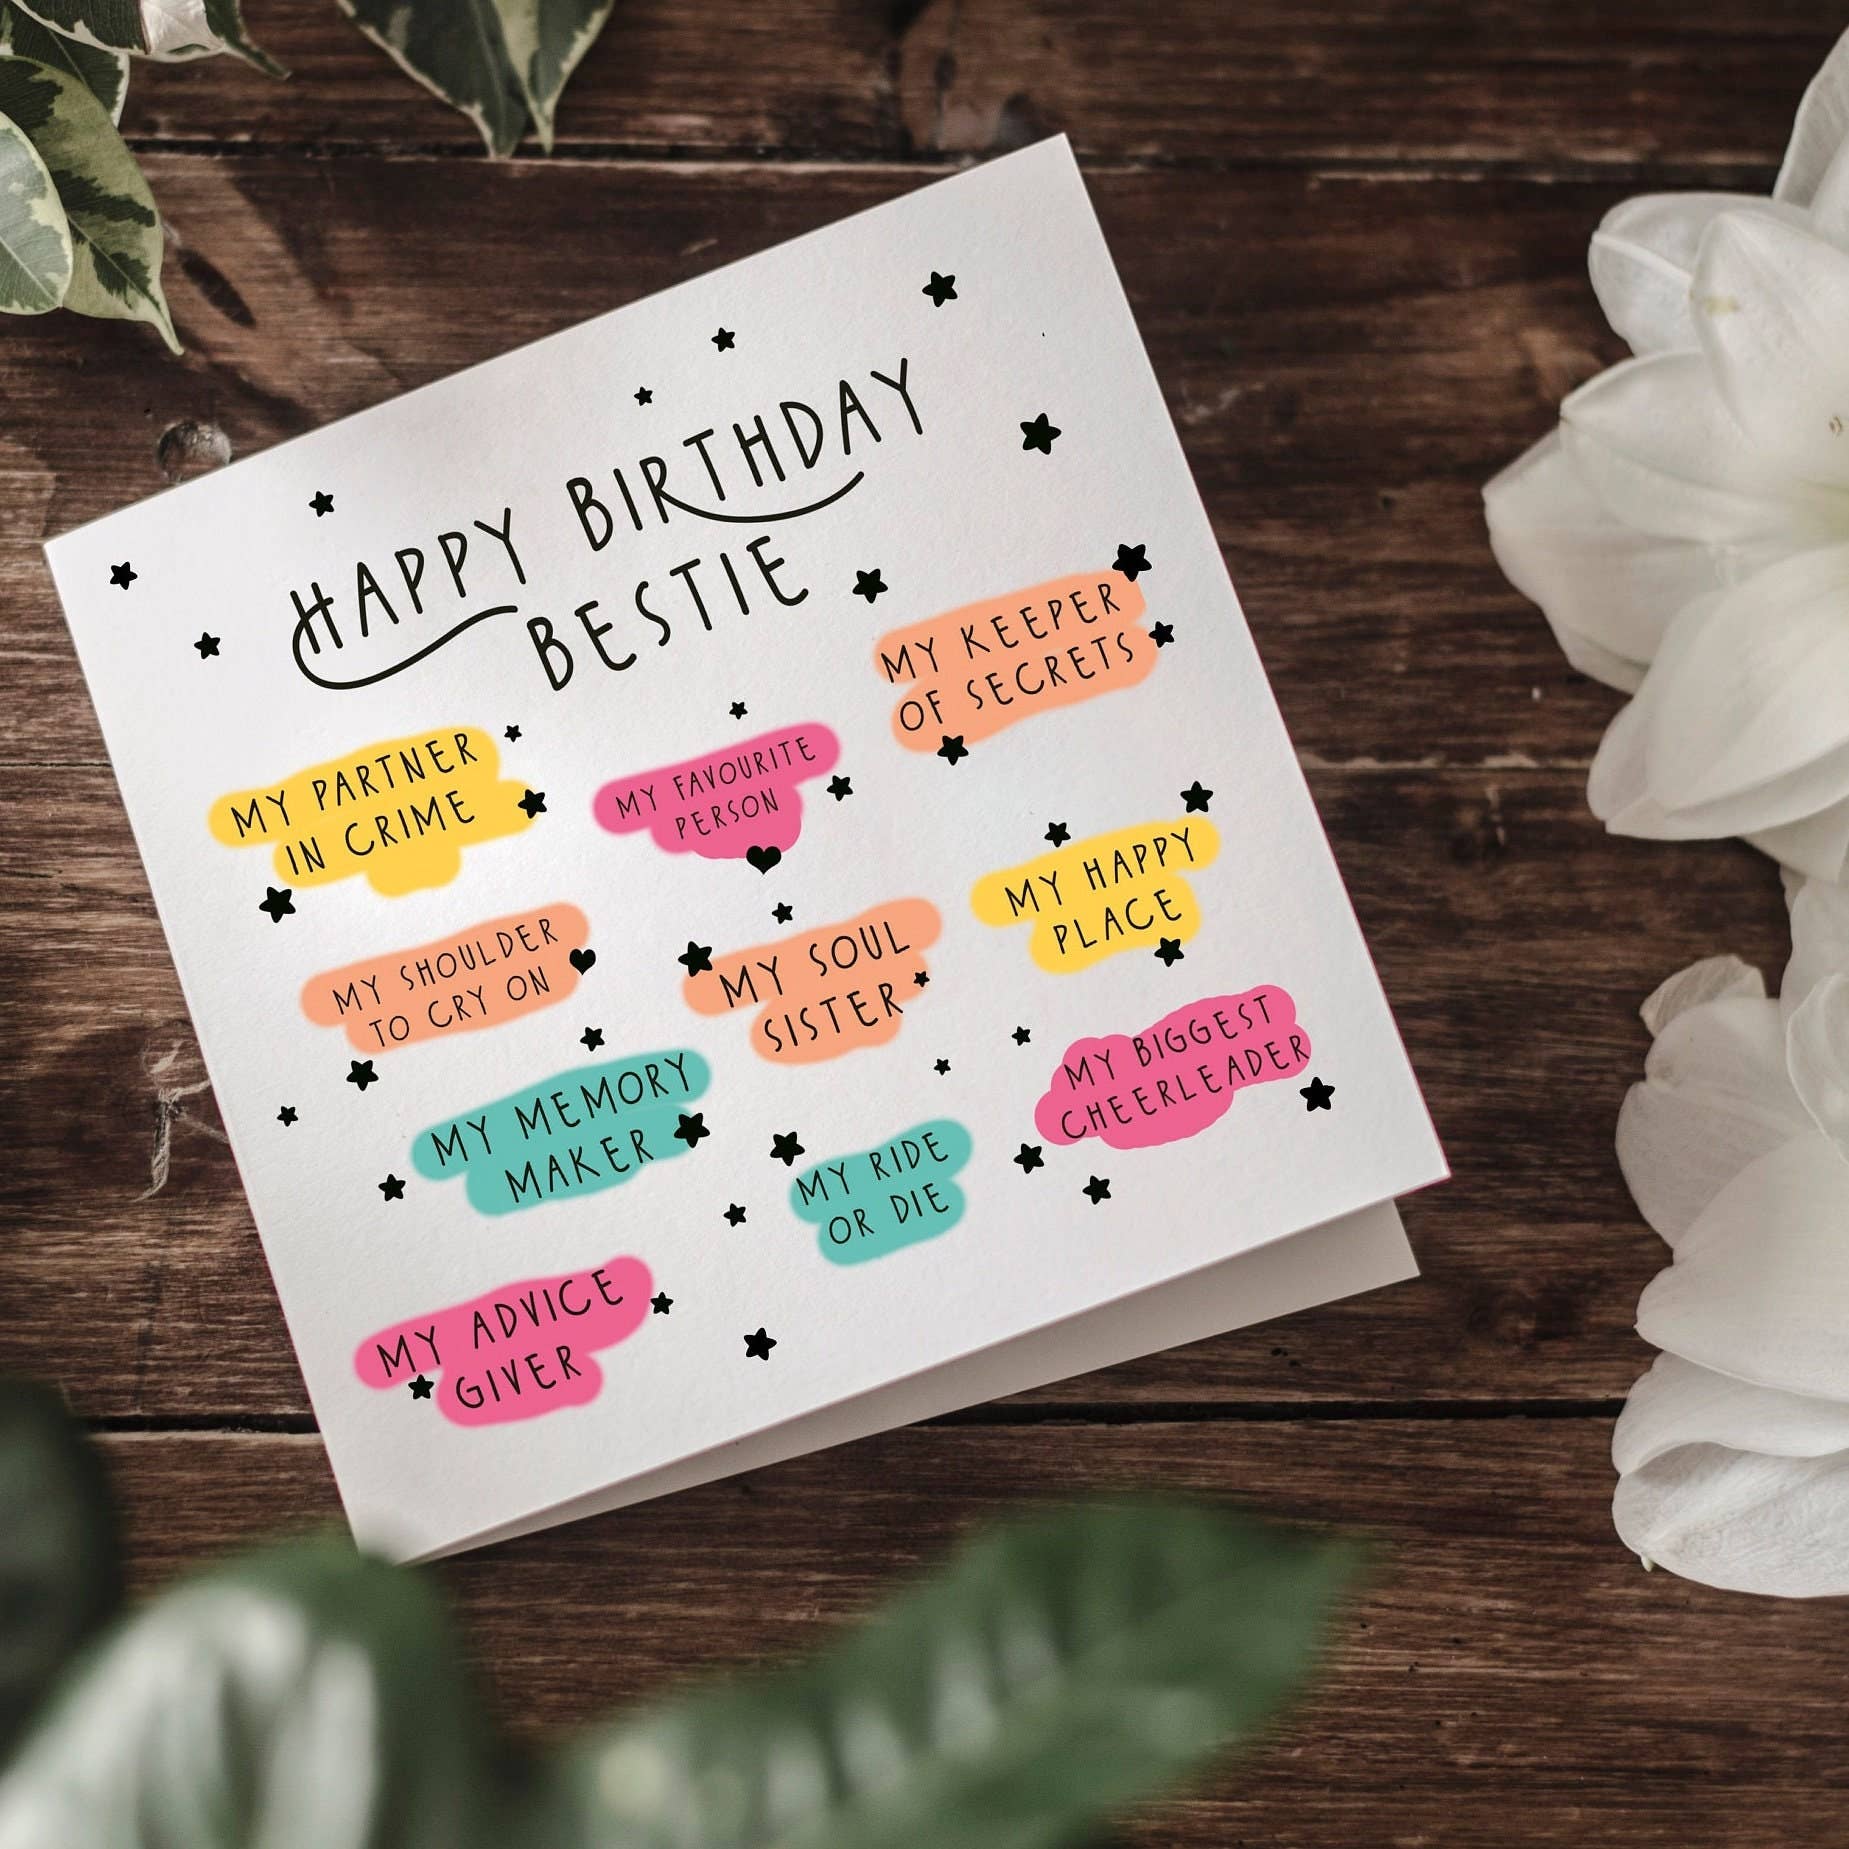 HAPPY BIRTHDAY
BESTIE
MY KEEPER
OF SECRETS
MY PARTNER
IN CRIME
MY FAVOURITE
PERSON
MY HAPPY
PLACE
MY SHOULDER
TO CRY ON
MY SOUL
SISTER
MY BIGGEST
CHEERLEADER
MY MEMORY
MAKER
MY RIDE
OR DIE
MY ADVICE
GIVER